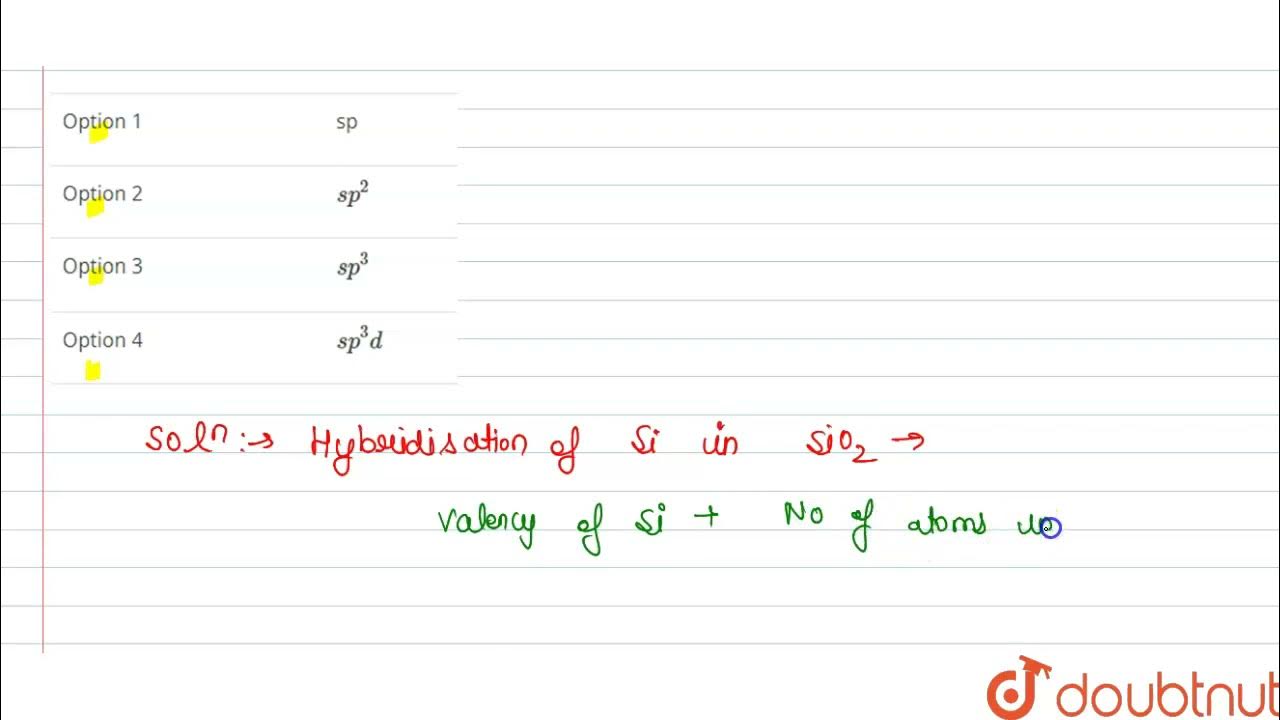 Option 1 sp
Option 2 sp²
Option 3 sp³
Option 4 sp³d
Soln:→ Hybridisation of Si in SiO₂ →
Valency of Si + No of atoms
doubtnut